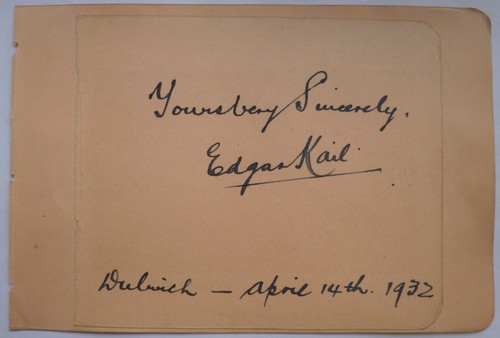 Yours Very Sincerely.
Edgar Kail
Dulwich — April 14th. 1932